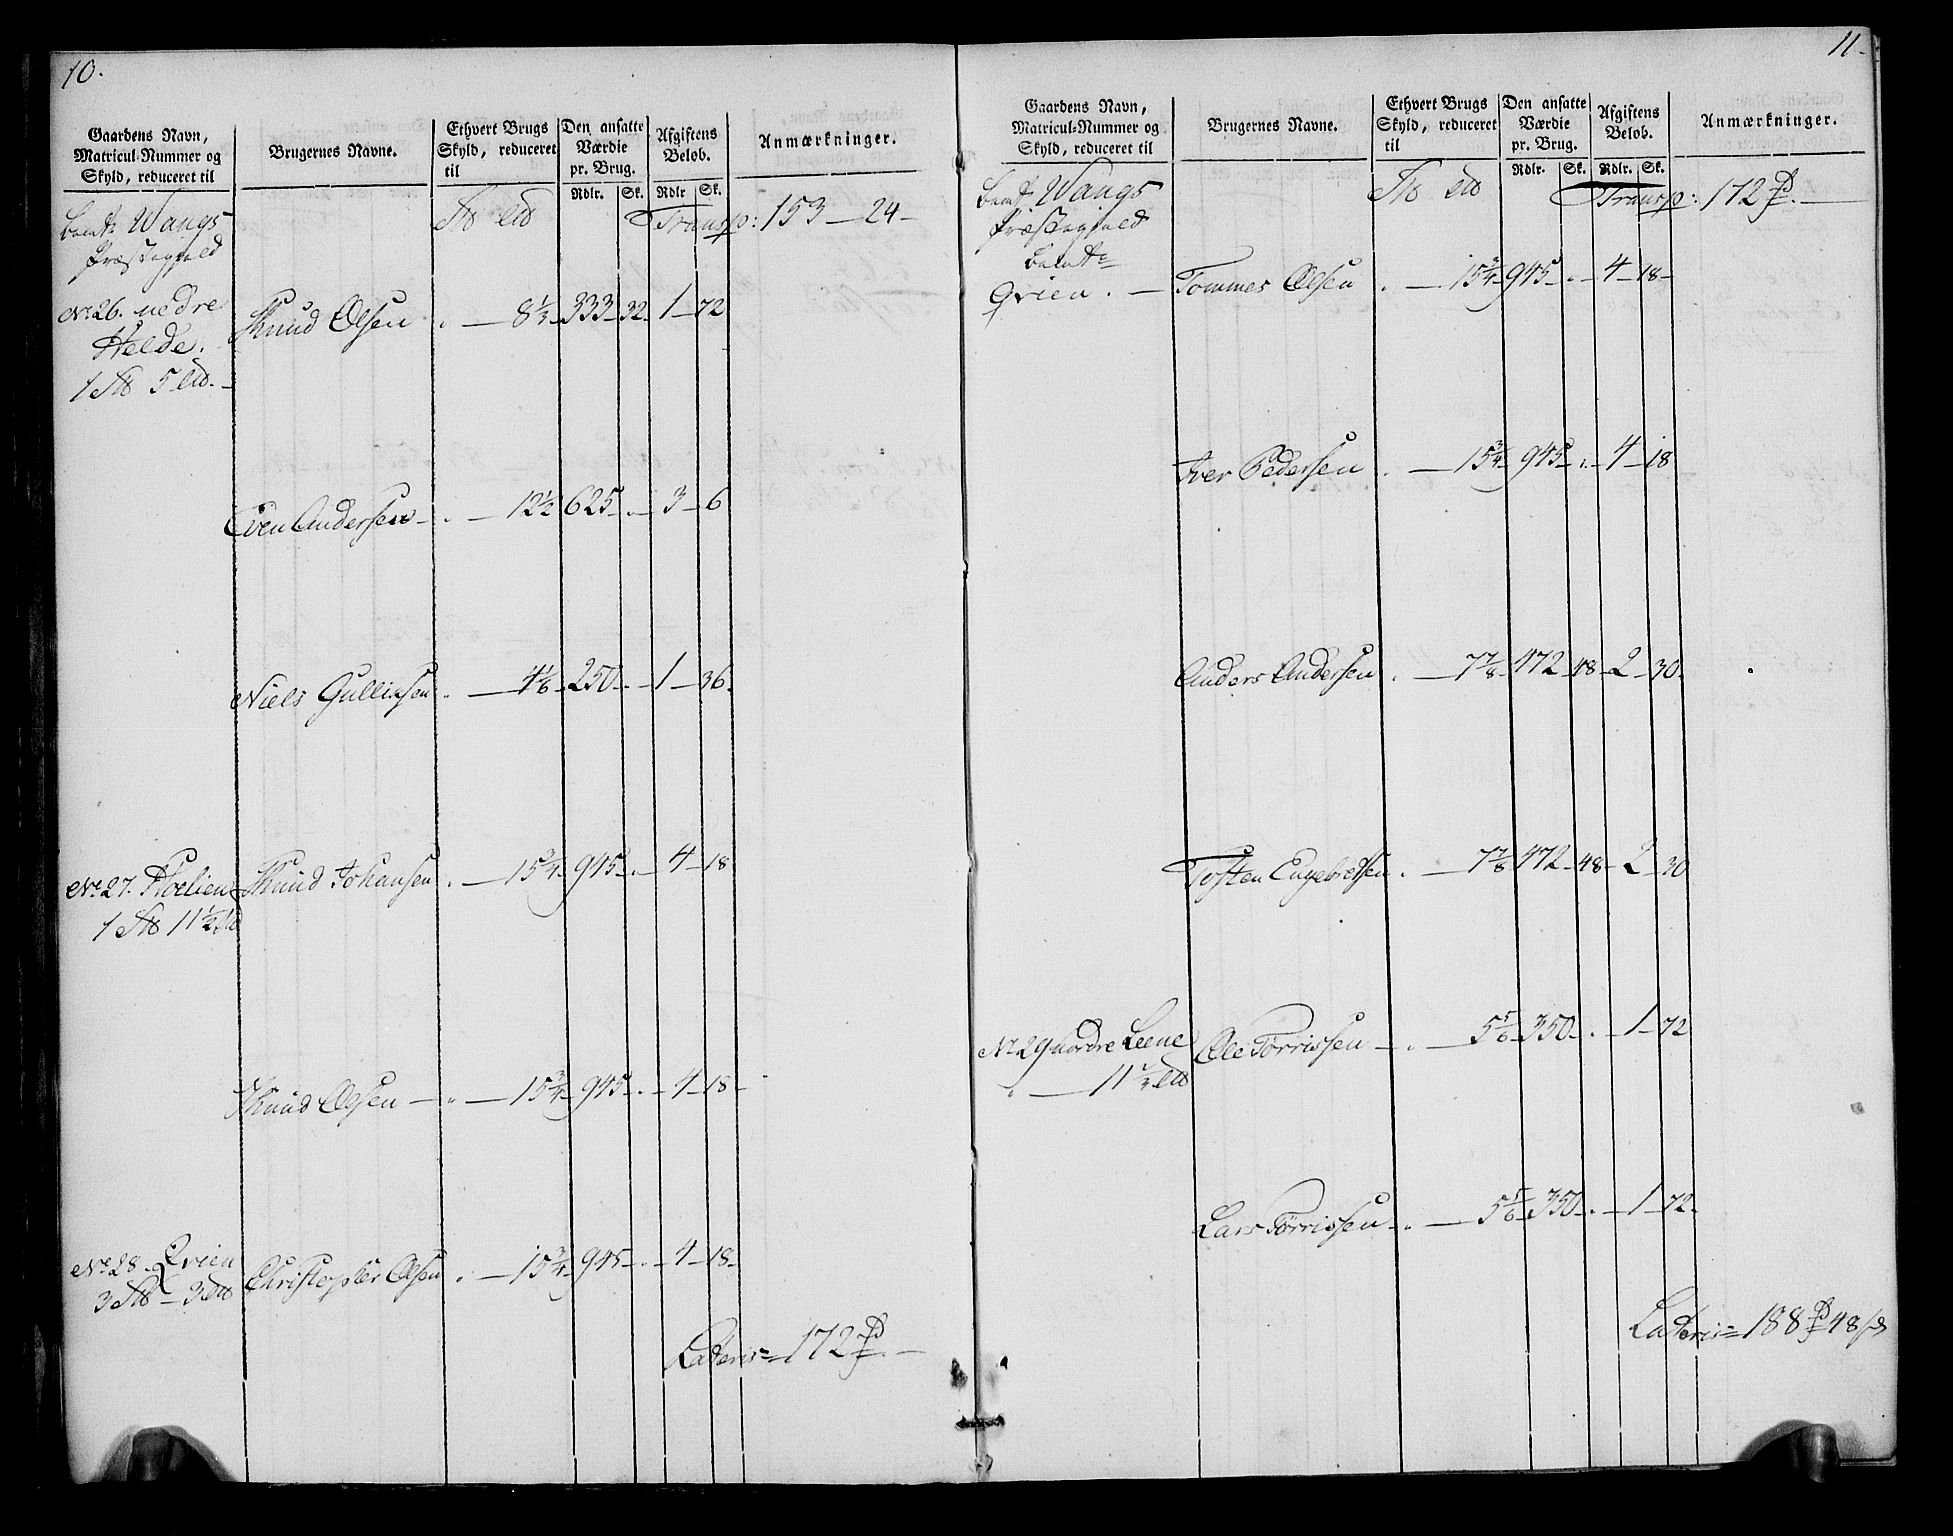 10.
Gaardens Navn, Matricul-Nummer og Skyld, reduceret til | Brugernes Navne. | Ethvert Brugs Skyld, reduceret til | Den ansatte Værdie pr. Brug. Rdlr. Sk. | Afgiftens Beløb. Rdlr Sk. | Anmærkninger.
bemt: Wangs Transp: 153 — 24 —
Præstegield
No 26. nedre Knud Olsen . — 8 1/3 — 333 — 32 — 1 — 72
Helde.
1 5
Even Andersen — . — 12 1/2 625 — . — 3 — 6
Niels Gullixsen . — 4 1/6 — 250 — . — 1 — 36 —
No 27. Knud Johansen . — 15 3/4 — 945 — . — 4 — 18
1 11 1/2
Knud Olsen — . — 15 3/4 — 945 — . — 4 — 18 —
No 28. Qvien Christopher Olsen . — 15 3/4 — 945 — . — 4 — 18 —
3 — 3
Lateris = 172
11
Gaardens Navn, Matricul-Nummer og Skyld, reduceret til | Brugernes Navne. | Ethvert Brugs Skyld, reduceret til | Den ansatte Værdie pr. Brug. Rdlr. Sk. | Afgiftens Beløb. Rdlr. Sk. | Anmærkninger.
bemt: Wangs Transp: 172
Præstegield
bemte
Qvien . — Tommes Olsen . — 15 3/4 — 945 — . — 4 — 18 —
Iver Pedersen . — 15 3/4 — 945 — . — 4 — 18
Anders Andersen . — 7 7/8 — 472 — 48 — 2 — 30 —
Tosten Engebretsen . — 7 7/8 — 472 — 48 — 2 — 30
No 29 nordre Leene Ole Tørrissen — . — 5 5/6 — 350 — . — 1 — 72
" — 11
Lars Tørrissen — . — 5 5/6 — 350 — . — 1 — 72 —
Lateris = 188 48